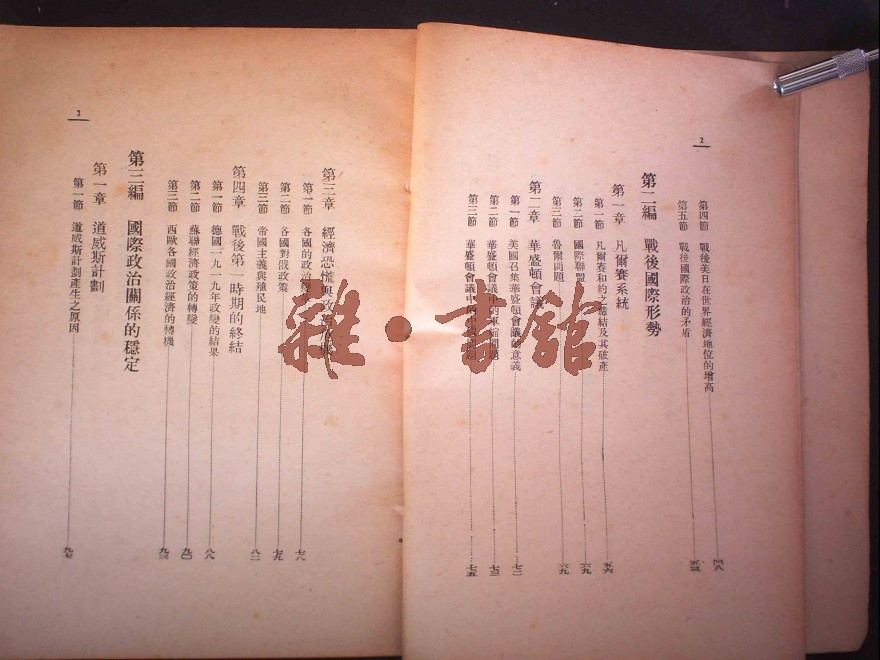 2
第四節 戰後美日在世界經濟地位的增高 四八
第五節 戰後國際政治的矛盾 五三
第二編 戰後國際形勢
第一章 凡爾賽系統
第一節 凡爾賽和約之締結及其破產 五六
第二節 國際聯盟 六九
第三節 魯爾問題 六九
第二章 華盛頓會議
第一節 美國召集華盛頓會議的意義 七二
第二節 華盛頓會議中的軍縮問題 七三
第三節 華盛頓會議中的 七五
2
第三章 經濟恐慌與政治
第一節 各國的政治 七八
第二節 各國對俄政策 七九
第三節 帝國主義與殖民地 八二
第四章 戰後第一時期的終結
第一節 德國一九一九年政變的結果 八八
第二節 蘇聯經濟政策的轉變 九〇
第三節 西歐各國政治經濟的轉機 九三
第三編 國際政治關係的穩定
第一章 道威斯計劃
第一節 道威斯計劃產生之原因 九七
雜·書館